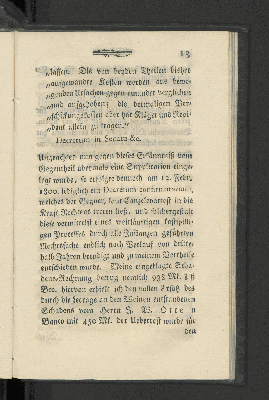 13
„lassen. Die von beyden Theilen bisher
„aufgewandte Kosten werden aus bewe-
„genden Ursachen gegen einander verglichen
„und aufgehoben; die dermaligen Ver-
„schickungskosten aber hat Kläger und Reqi-
„dent allein zu tragen.“
Decretum in Senatu &c.
Ungeachtet nun gegen dieses Erkänntniß vom
Gegentheil abermals eine Supplication einge-
legt wurde, so erfolgte dennoch am 12. Febr.
1800. lediglich ein Decretum confirmatorium,
welches der Gegner, laut Canzeleyattest in die
Kraft Rechtens treten ließ, und solchergestalt
diese vermittelst eines weitläuftigen kostspieli-
gen Processes durch alle Instanzen geführte
Rechtssache endlich nach Verlauf von dritte-
halb Jahren beendigt und zu meinem Vortheile
entschieden wurde. Meine eingeklagte Scha-
dens-Rechnung betrug nemlich 938 Mk. 8 ß
Bco. hiervon erhielt ich den vollen Ersatz des
durch die Leccage an den Weinen entstandenen
Schadens vom Herrn J. W. Otte in
Banco mit 450 Mk. der Ueberrest wurde für
den